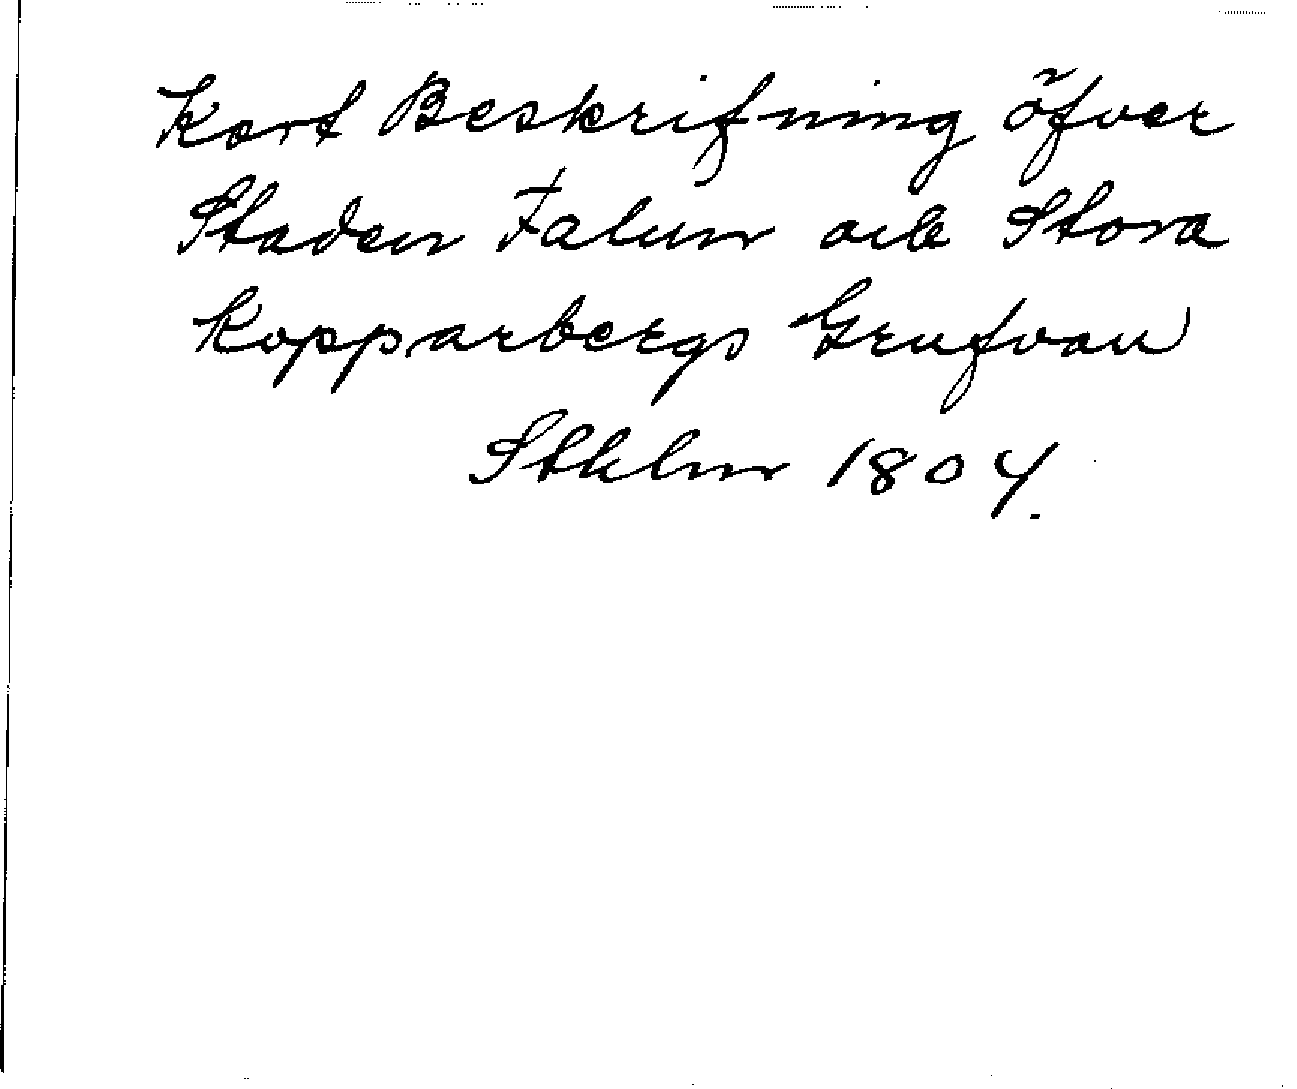 Kort Beskrifning öfver
Staden Falun och Stora
Kopparbergs Grufvan
Sthlm 1804.